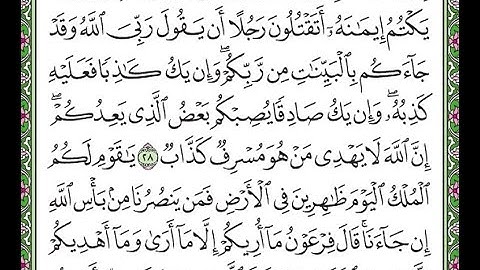 يَكْتُمُ إِيمَٰنَهُۥٓ أَتَقْتُلُونَ رَجُلًا أَن يَقُولَ رَبِّيَ ٱللَّهُ وَقَدْ
جَآءَكُم بِٱلْبَيِّنَٰتِ مِن رَّبِّكُمْ ۖ وَإِن يَكُ كَٰذِبًا فَعَلَيْهِ
كَذِبُهُۥ ۖ وَإِن يَكُ صَادِقًا يُصِبْكُم بَعْضُ ٱلَّذِى يَعِدُكُمْ ۖ
إِنَّ ٱللَّهَ لَا يَهْدِى مَنْ هُوَ مُسْرِفٌ كَذَّابٌ ٢٨ يَٰقَوْمِ لَكُمُ
ٱلْمُلْكُ ٱلْيَوْمَ ظَٰهِرِينَ فِى ٱلْأَرْضِ فَمَن يَنصُرُنَا مِنۢ بَأْسِ ٱللَّهِ
إِن جَآءَنَا ۚ قَالَ فِرْعَوْنُ مَآ أُرِيكُمْ إِلَّا مَآ أَرَىٰ وَمَآ أَهْدِيكُمْ